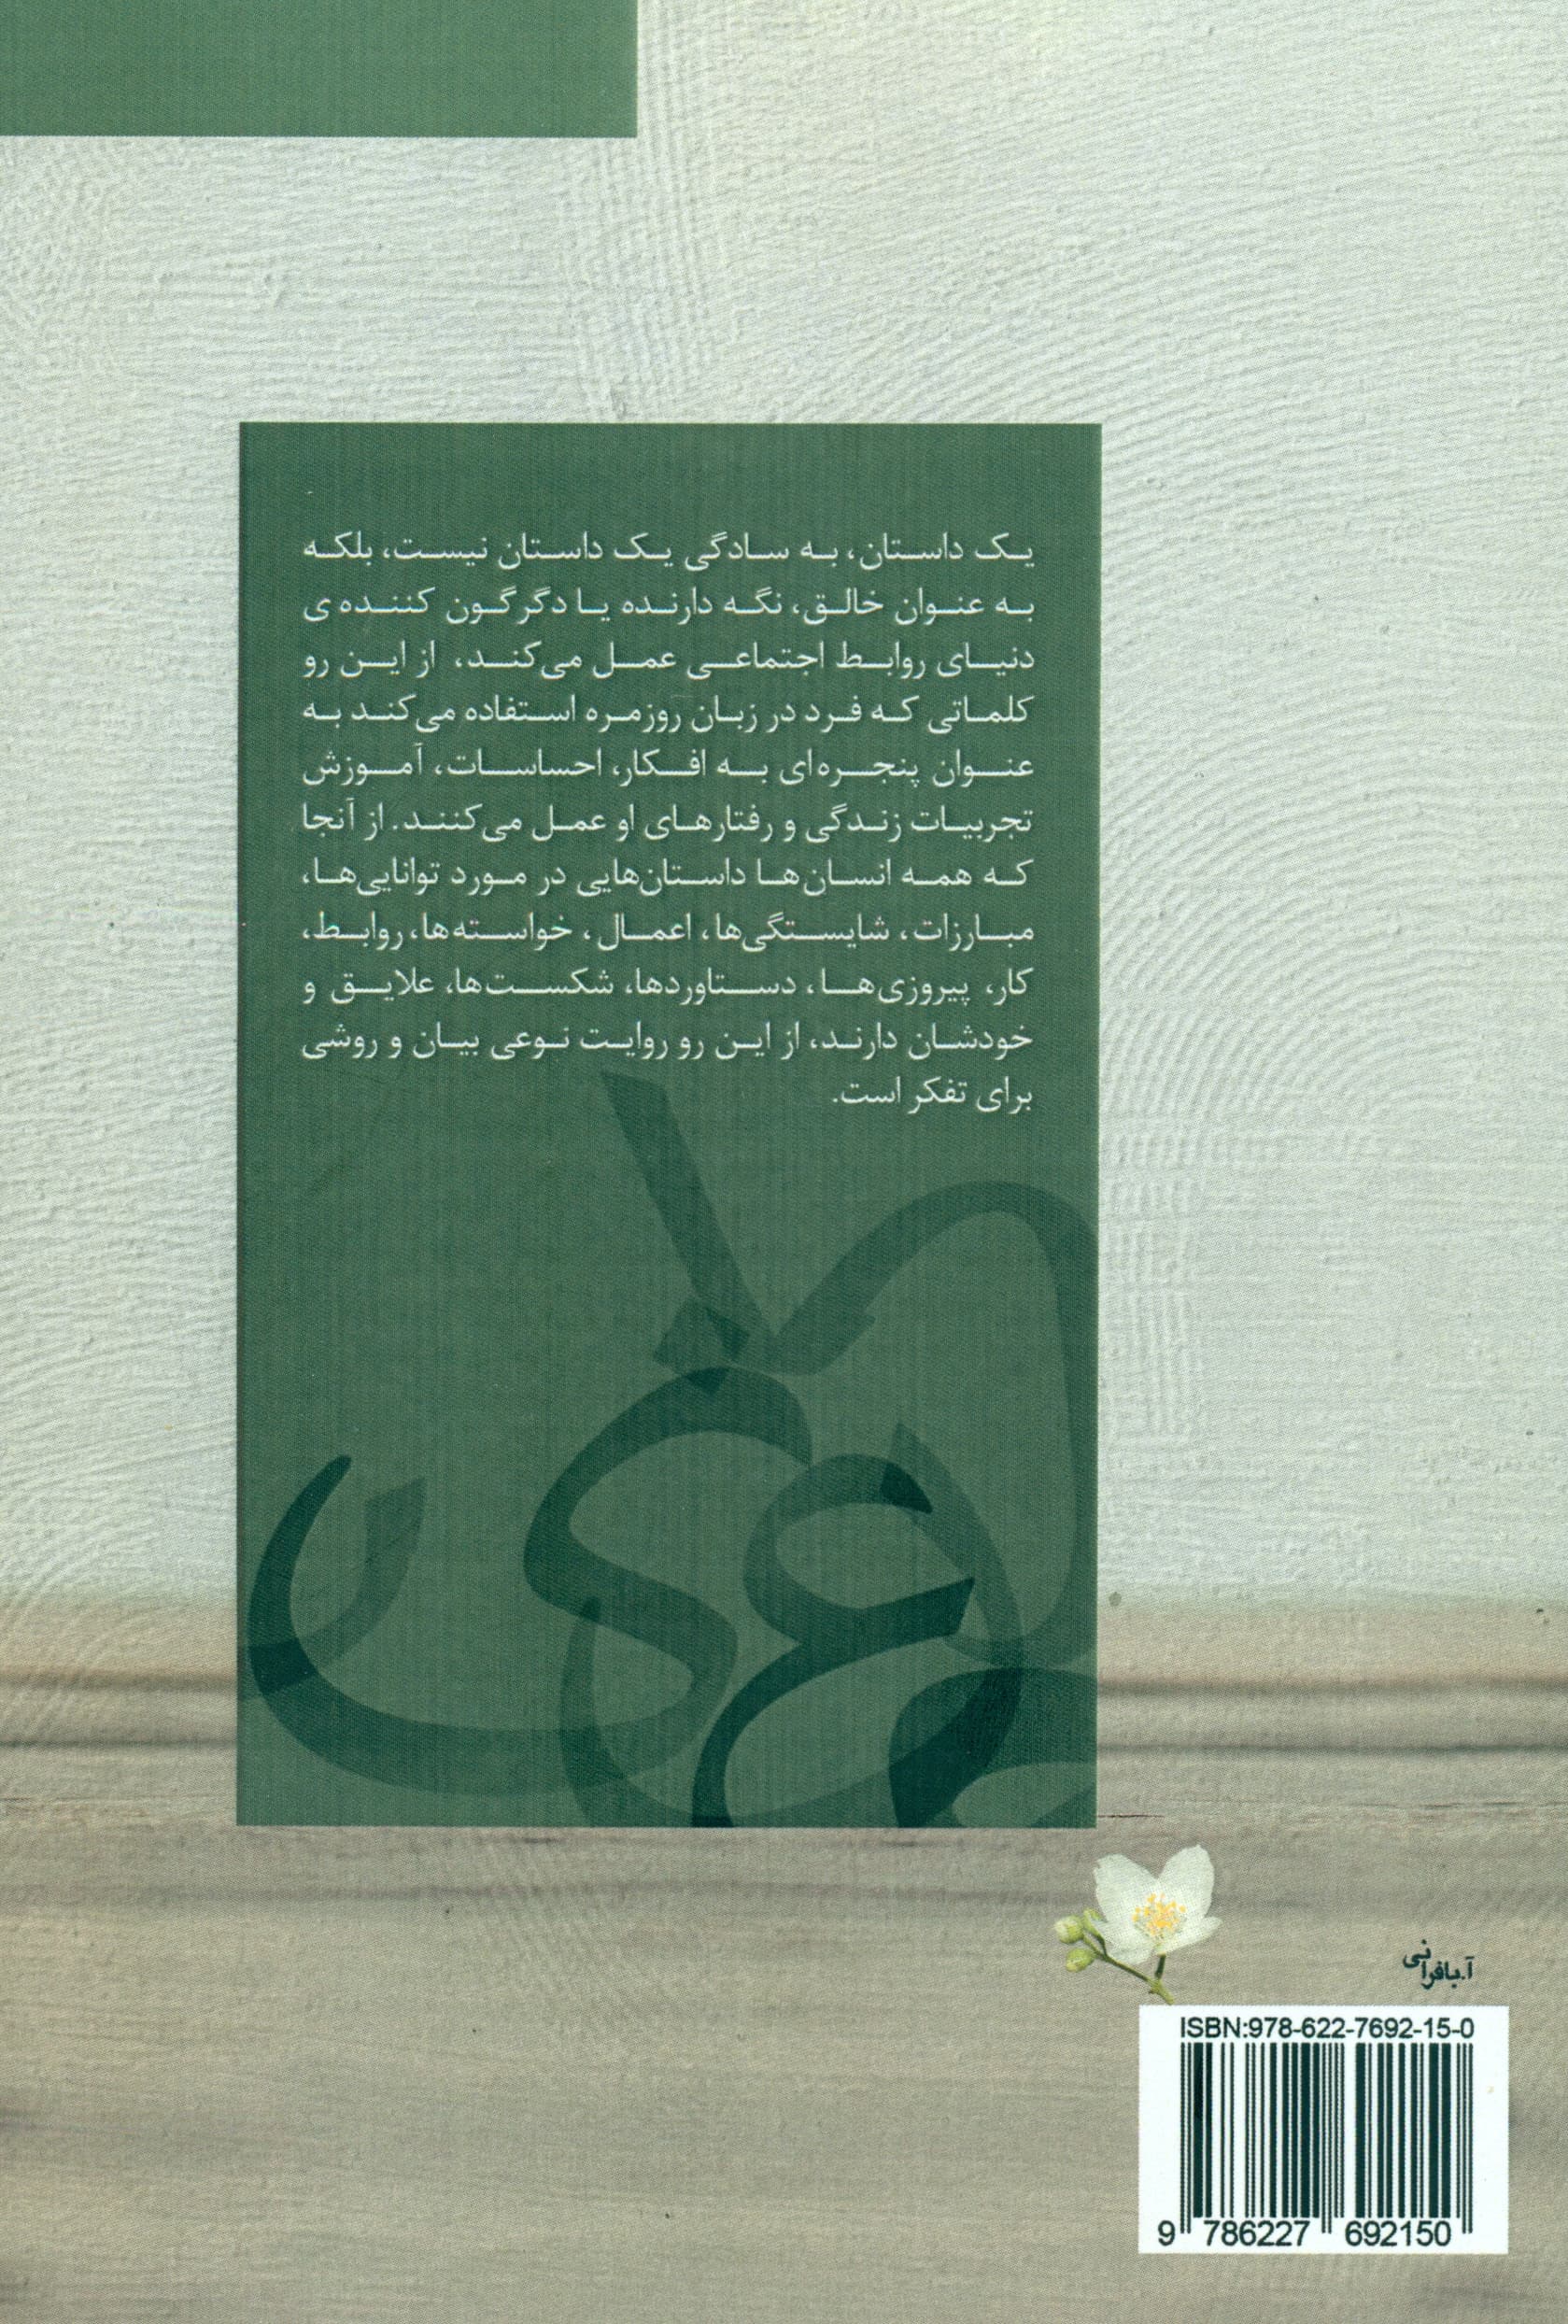 یک داستان، به سادگی یک داستان نیست، بلکه
به عنوان خالق، نگه دارنده یا دگرگون کننده ی
دنیای روابط اجتماعی عمل می‌کند، از این رو
کلماتی که فرد در زبان روزمره استفاده می‌کند به
عنوان پنجره‌ای به افکار، احساسات، آموزش
تجربیات زندگی و رفتارهای او عمل می‌کنند. از آنجا
که همه انسان‌ها داستان‌هایی در مورد توانایی‌ها،
مبارزات، شایستگی‌ها، اعمال، خواسته‌ها، روابط،
کار، پیروزی‌ها، دستاوردها، شکست‌ها، علایق و
خودشان دارند، از این رو روایت نوعی بیان و روشی
برای تفکر است.
آ.بافرانی
ISBN:978-622-7692-15-0
9 786227 692150